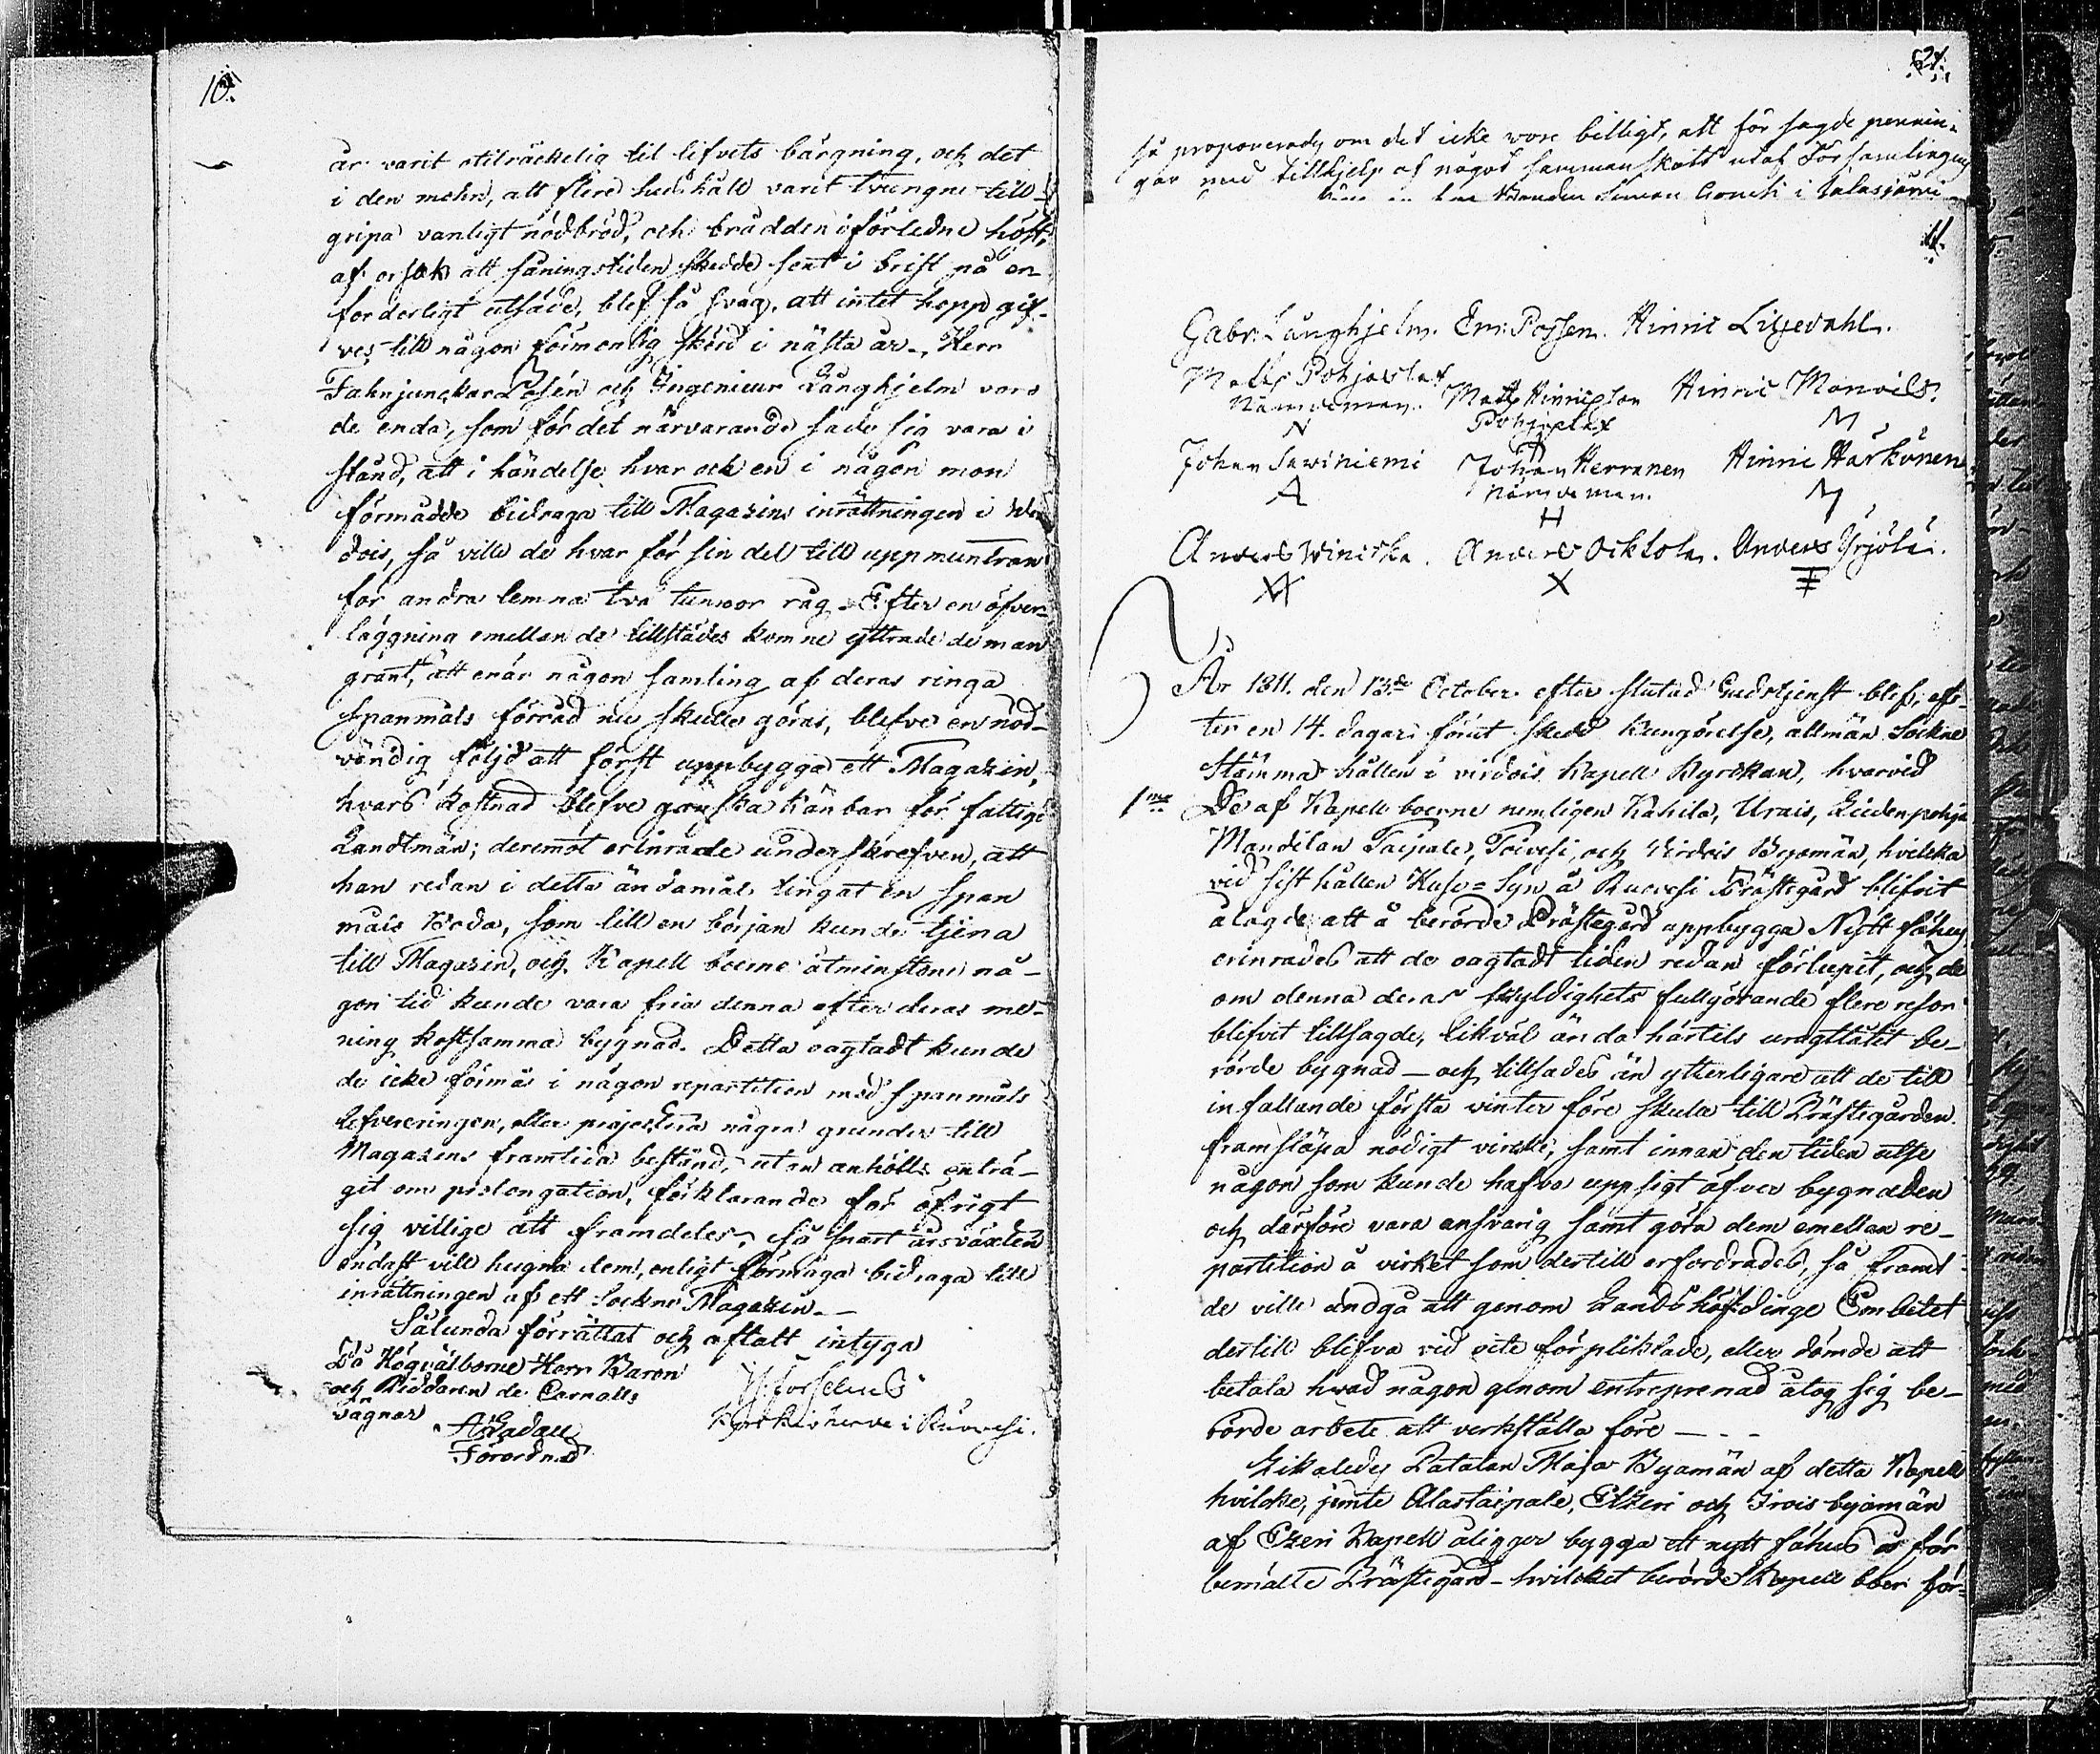 10.
år varit otilräckelig til lifvets bärgning, och det
i den mohn, att flere hushåll varit tvungne till-
gripa vanligt nödbröd, och brådden i förledne höst,
af orsak att såningstiden skedde sent i brist på er-
forderligt utsäde, blef så svag, att intet hopp gif-
ves till någon förmonlig skörd i nästa år. Herr
Fahnjunckar Posén och Ingenieur Långhjelm voro
de enda, som för det närvarande sade sig vara i
stånd, att i händelse hvar och en i någon mon
förmådde bidraga till Magasins inrättningen i Wir-
dois, så ville de hvar för sin del till uppmuntran
för andra lemna två tunnor råg. Efter en öfver-
läggning emellan de tillstädes komne yttrade de man
grant, att enär någon samling af deras ringa
spanmåls förråd nu skulle göras, blefve en nöd-
vändig följd att först uppbygga ett Magazin,
hvars kostnad blefve ganska känbar för fattige
Landtmän; deremot erinrade underskrefven, att
han redan i detta ändamål tingat en Span
måls Boda, som till en början kunde tjena
till Magazin, och Kapell boerne åtminstone nå-
gon tid kunde vara fria denna efter deras me-
ning kostsamma bygnad. Detta oagtadt kunde
de icke förmås i någon repartition med spanmåls
lefvereringen, eller projectera några grunder till
Magasins framtida bestånd, utan anhölls enträ-
git om prolongation, förklarande för öfrigt
sig villige att framdeles, så snart årsväxten
endast vill hugna dem, enligt förmåga bidraga till
inrättningen af ett Sockne Magazin.
Sålunda förrättat och aftalt intyga
På Högvälborne Herr Baron
och Riddaren de Carnalls
vägnar
A Ladau
Förordnad
H: Forselius
Kyrkoherde i Ruovesi.
21.
så proponerades om det icke vore billigt, att för sagde pennin-
gar med tillhjelp af något sammanskott utaf Församlingens
Bonden Simon i Talasjärvi
11.
Gabr. Långhjelm. Em: Possen. Hinric Liljedahl.
Matts Pohjaslax Matts Hinricsson Hinric Monoils.
Nämndeman. Pohjaslax
N M
Johan Sawiniemi Johan Herranen Hinric Härkönen
A Nämndeman. M
H
Anders Winicka. Anders Ocktola. Anders Yrjölä.
X
År 1811. den 13de October efter slutad Gudstjenst blef, ef-
ter en 14. dagar förut skedd kungörelse, allmän Sockne
Stämma hållen i virdois Kapell Kyrckan, hvarvid
1mo De af Kapell boerne nemligen Kahila, Urais, Liedenpohja
Mandilan Taipale, Toivesi, och Virdois Byamän, hvilcka
vid sist hållen Huse-Syn å Ruovesi Prästegård blifvit
ålagde att å berörde Prästegård uppbygga Nytt fähus
erinrades att de oagtadt tiden redan förlupit, och de
om denna deras skyldighets fullgörande flere resor
blifvit tillsagde, likväl ända härtils uragtlåtit be-
rörde bygnad - och tillsades än ytterligare att de till
infallande första vinter före skula till Prästegården
framsläpa nödigt vircke, samt innan den tiden utse
någon som kunde hafva uppsigt öfver bygnaden
och därföre vara ansvarig samt göra dem emellan re-
partition å virket som dertill erfordrades, så framt
de ville undgå att genom Landshöfdinge Embetet
dertill blifva vid vite förpliktade, eller dömde att
betala hwad någon genom entreprenad åtog sig be-
rörde arbete att verkställa före - - -
Likaledes Patalan Maja Byamän af detta Kapell
hvilcke, jemte Alastaipale, Etzeri och Irois byamän
af Etzeri Kapell åligger bygga ett nytt fähus å för
bemälte Prästegård - hvilcket berörde Kapell boer för-